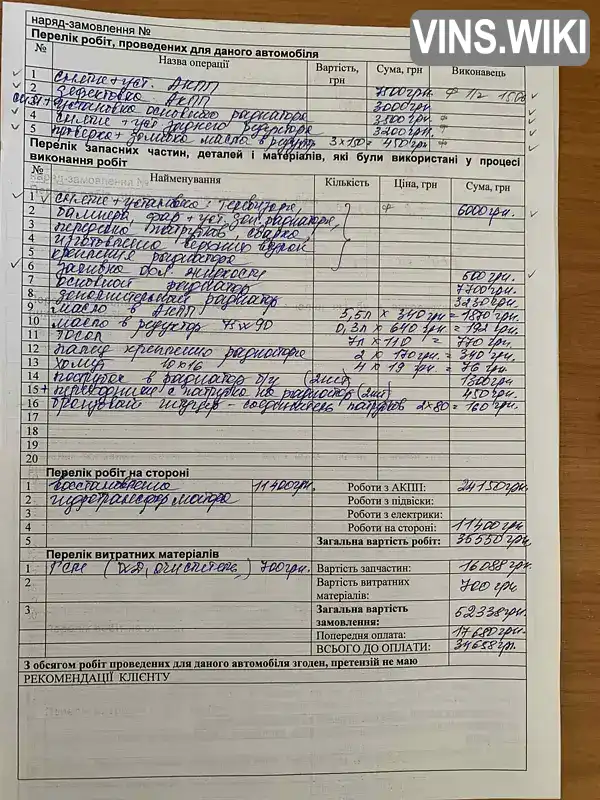 VINS.WIKI
наряд-замовлення №
Перелік робіт, проведених для даного автомобіля
№ Назва операції Вартість, грн Сума, грн Виконавець
1 снятие + уст. АКПП 7500 грн ф 1/2 1500
2 Дефектовка АКПП 3000 грн
3 снят + установка основного радиатора 3800 грн
4 снятие + уст заднего редуктора 3200 грн
5 проверка + заливка масла в редукт 3 x 150 = 450 грн
Перелік запасних частин, деталей і матеріалів, які були використані у процесі виконання робіт
№ Найменування Кількість Ціна, грн Сума, грн
1 снятие + установка: телевизора, ф 6000 грн.
2 бампера, фар + уст. доп. радиатора,
3 переделка патрубков, сварка,
4 изготовление верхних
5 крепления радиатора
6 заливка охл. жидкости 600 грн.
7 основной радиатор 7700 грн.
8 дополнительный радиатор 3230 грн.
9 масло в АКПП 5,5л x 340 грн = 1870 грн.
10 масло в редуктор 75w90 0,3л x 640 грн = 192 грн.
11 тосол 7л x 110 = 770 грн.
12 палец крепления радиатора 2 x 170 грн. = 340 грн.
13 хомут 10x16 4 x 19 грн. = 76 грн.
14 патрубок в радиатор б/у (2шт) 1300 грн.
15 + переходники с патрубка на радиатор (2шт) 450 грн.
16 бронзовый штуцер - соединитель патрубков 2x80 = 160 грн.
17
18
19
20
Перелік робіт на стороні
1 восстановление 11400 грн. Роботи з АКПП: 24150 грн.
2 гидротрансформатора Роботи з підвіски:
3 Роботи з електрики:
4 Роботи на стороні: 11400 грн
5 Загальна вартість робіт: 35550 грн.
Перелік витратних матеріалів
1 ГСМ ( очиститель ) 700 грн. Вартість запчастин: 16088 грн.
2 Вартість витратних матеріалів: 700 грн
3 Загальна вартість замовлення: 52338 грн.
Попередня оплата: 17680 грн.
ВСЬОГО ДО ОПЛАТИ: 34658 грн.
З обсягом робіт проведених для даного автомобіля згоден, претензій не маю
РЕКОМЕНДАЦІЇ КЛІЄНТУ